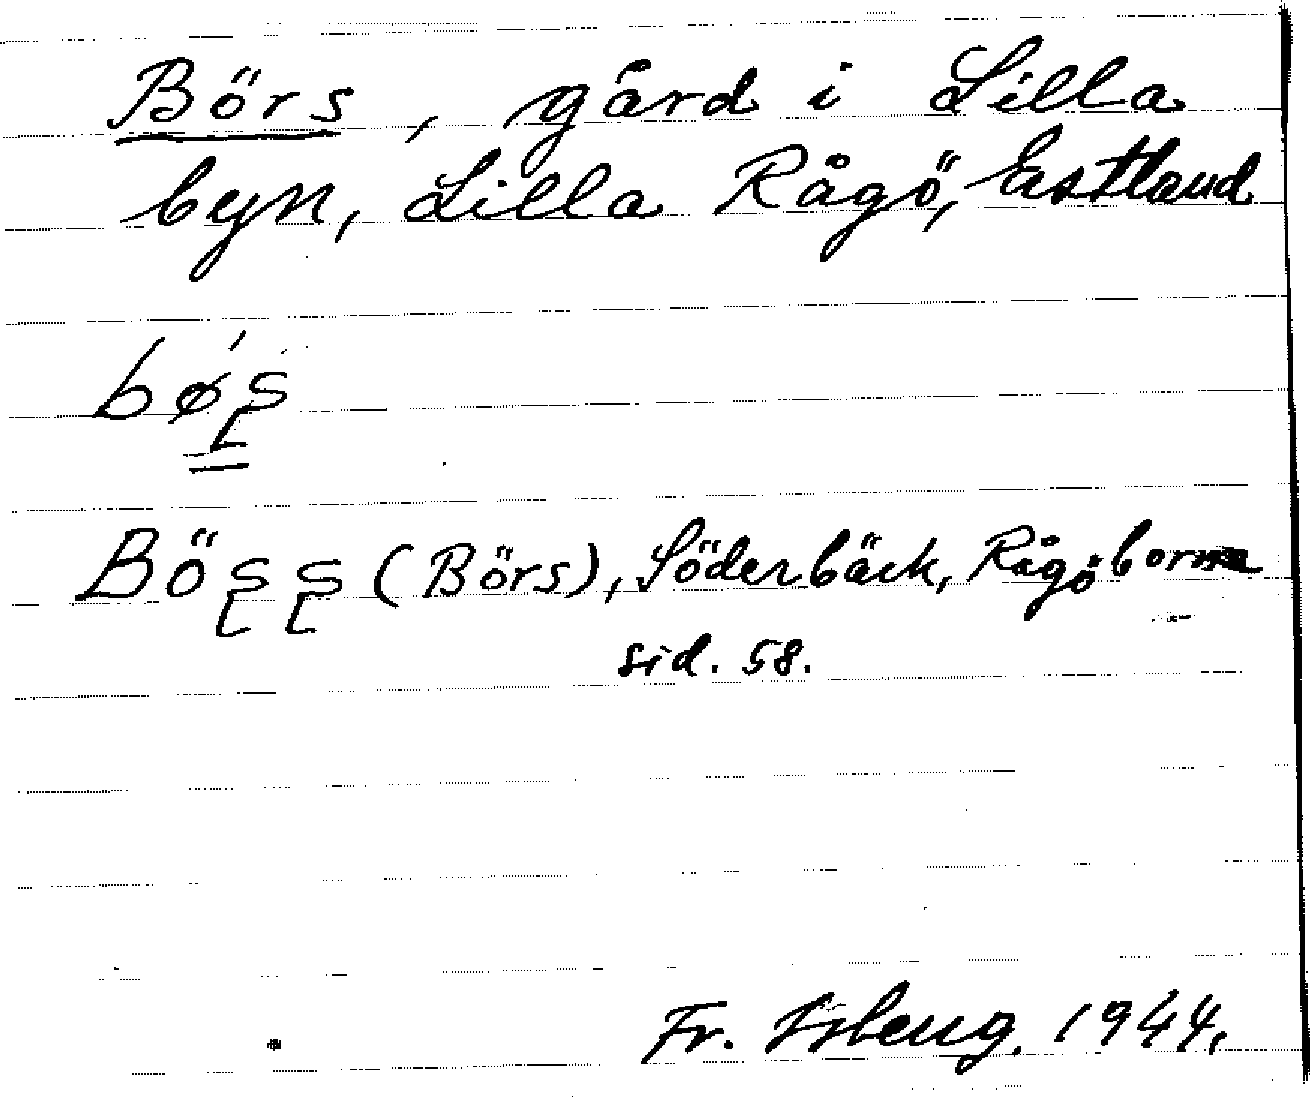 Börs, gård i Lilla
byn, Lilla Rågö, Estland
bǿʂ
Böʂʂ (Börs), Söderbäck, Rågöborna
sid. 58.
Fr. 1944.